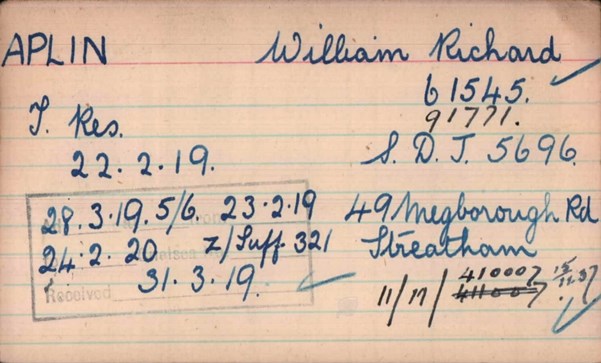 APLIN William Richard
61545.
91771.
T. Res.
22.2.19.
S. D. J. 5696.
28.3.19. 5/6. 23.2.19
24.2.20 Z/Suff 321
31.3.19.
Received
49 Megborough Rd
Streatham
11/M/ 410007
411007